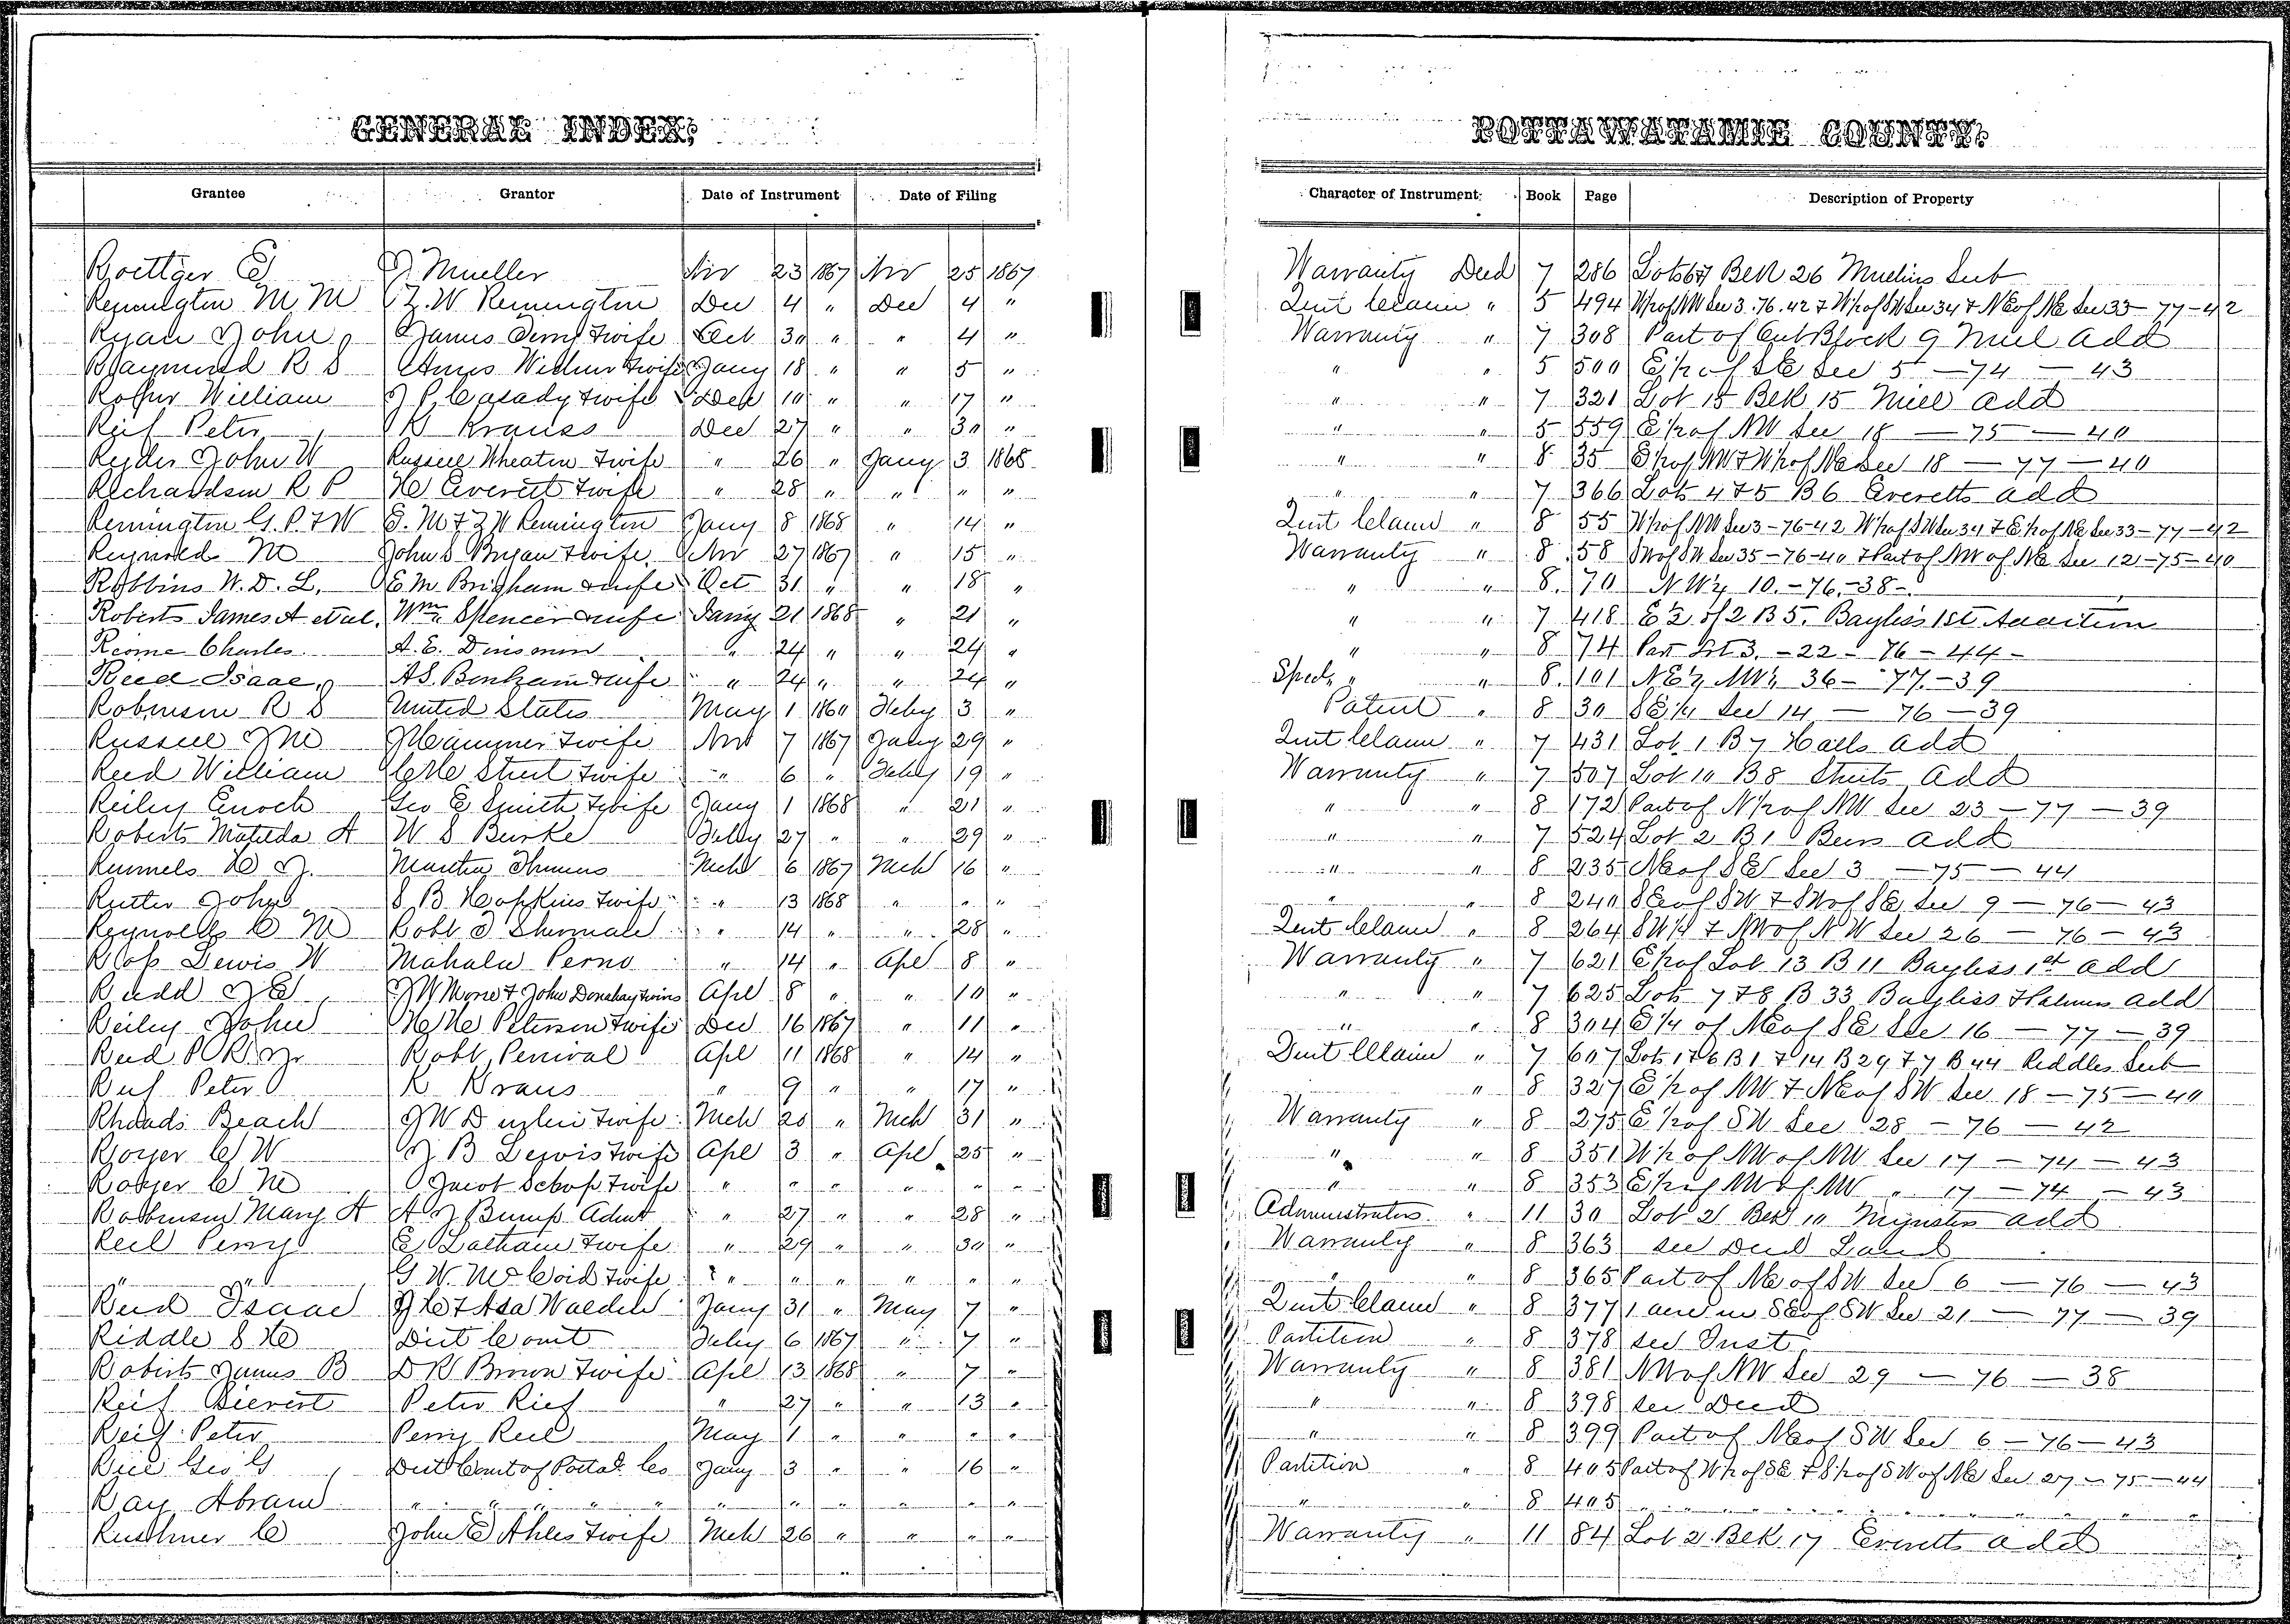 GENERAL INDEX,
Grantee Grantor Date of Instrument Date of Filing
Boettger E J Mueller Nov 23 1867 Nov 25 1867
Remington M M Z. W Remington Dec 4 " Dec 4 "
Ryan John James &wife Oct 30 " " 4 "
Raymond R S Amos &wife Jany 18 " " 5 "
William J P Casady &wife Dec 10 " " 17 "
Reif Peter K Krauss Dec 27 " " 30 "
Ryder John W Russell Wheaton &wife " 26 " Jany 3 1868
Richardson R P H Everett &wife " 28 " " " "
Remington G. P. & W E. M & Z W Remington Jany 8 1868 " 14 "
Reynold John S Bryan &wife Nov 27 1867 " 15 "
Robbins W. D. L. E M Brigham &wife Oct 31 " " 18 "
Roberts James A et al. Wm Spencer &wife Jany 21 1868 " 21 "
Rcome Charles A. E. Dinsmore " 24 " " 24 "
Reed Isaac A S. Bonham &wife " 24 " " 24 "
Robinson R S United States May 1 1860 Feby 3 "
Russell J Hammer &wife Nov 7 1867 Jany 29 "
Reed William Street &wife " 6 " Feby 19 "
Reiley Enoch Geo E Smith &wife Jany 1 1868 " 21 "
Roberts Matilda A W S Burke Feby 27 " " 29 "
Rummels H J. Martha Thomas Mch 6 1867 Mch 16 "
Rutter John S B Hopkins &wife " 13 1868 " " "
Reynolds C M Robt D " 14 " " 28 "
Ross Lewis W Mahala Perno " 14 " Apl 8 "
Rudd J E J W Morse & John Donahay & wives Apl 8 " " 10 "
Reiley John Peterson &wife Dec 16 1867 " 11 "
Reed P R Jr Robt Percival Apl 11 1868 " 14 "
Ruf Peter K Kraus " 9 " " 17 "
Rhoads Beach J W &wife Mch 20 " Mch 31 "
Royer C W J B Lewis &wife Apl 3 " Apl 25 "
Royer C H Jacob &wife " " " " " "
Robinson Mary A A J Bump Admr " 27 " " 28 "
Reel Perry E Latham &wife " 29 " " 30 "
" " G W. McCoid &wife " " " " " "
Reed Isaac J C & Asa Walden Jany 31 " May 7 "
Riddle S H Dist Court Feby 6 1867 " 7 "
Roberts James B D K Brown &wife Apl 13 1868 " 7 "
Reif Sievert Peter Rief " 27 " " 13 "
Reif Peter Perry Reel May 1 " " " "
Rice Geo G Dist Court of Potta. Co Jany 3 " " 16 "
Ray Abram " " " " " " " " " "
Rushmer C John E Ahles &wife Mch 26 " " " "
POTTAWATAMIE COUNTY,
Character of Instrument Book Page Description of Property
Warranty Deed 7 286 Lots 6&7 Blk 26 Mullins Sub
Quit Claim " 5 494 W½ of NW Sec 3. 76. 42 & W½ of SW Sec 34 & NE of NE Sec 33-77-42
Warranty " 7 308 Part of Out Block 9 Mill Add
" " 5 500 E½ of SE Sec 5 - 74 - 43
" " 7 321 Lot 15 Blk 15 Mill Add
" " 5 559 E½ of NW Sec 18 - 75 - 40
" " 8 35 E½ of NW & W½ of NE Sec 18 - 77 - 40
" " 7 366 Lots 4 & 5 B 6 Everetts Add
Quit Claim " 8 55 W½ of NW Sec 3-76-42 W½ of SW Sec 34 & E½ of NE Sec 33-77-42
Warranty " 8 58 SW of SW Sec 35-76-40 & Part of NW of NE Sec 12-75-40
" " 8. 70 NW¼ 10.-76.-38-
" " 7 418 E ½ of 2 B 5. Bayliss 1st Addition
" " 8 74 Part Lot 3. - 22 - 76 - 44 -
Specl " " 8. 101 NE¼ NW¼ 36- 77.-39
Patent " 8 30 SE¼ Sec 14 - 76 - 39
Quit Claim " 7 431 Lot 1 B 7 Halls Add
Warranty " 7 507 Lot 10 B 8 Streets Add
" " 8 172 Part of N½ of NW Sec 23 - 77 - 39
" " 7 524 Lot 2 B 1 Beers Add
" " 8 235 NE of SE Sec 3 - 75 - 44
" " 8 240 SE of SW & SW of SE Sec 9 - 76 - 43
Quit Claim " 8 264 SW¼ & NW of NW Sec 26 - 76 - 43
Warranty " 7 621 E½ of Lot 13 B 11 Bayliss 1st Add
" " 7 625 Lots 7 & 8 B 33 Bayliss & Palmers Add
" " 8 304 E¼ of NE of SE Sec 16 - 77 - 39
Quit Claim " 7 607 Lots 1 & 6 B 1 & 14 B 29 & 7 B 44 Riddles Sub
" 8 327 E½ of NW & NE of SW Sec 18 - 75 - 40
Warranty " 8 275 E½ of SW Sec 28 - 76 - 42
" " 8 351 W½ of NW of NW Sec 17 - 74 - 43
" " 8 353 E½ of NW of NW " 17 - 74 - 43
Administrators " 11 30 Lot 2 Blk 10 Mynsters Add
Warranty " 8 363 see Deed Land
" " 8 365 Part of NE of SW Sec 6 - 76 - 43
Quit Claim " 8 377 1 acre in SE of SW Sec 21 - 77 - 39
Partition " 8 378 see Inst
Warranty " 8 381 NW of NW Sec 29 - 76 - 38
" " 8 398 see Deed
" " 8 399 Part of NE of SW Sec 6 - 76 - 43
Partition " 8 405 Part of W½ of SE & S½ of SW of NE Sec 27 - 75 - 44
" " 8 405 " " " " " "
Warranty " 11 84 Lot 2 Blk 17 Everetts Add